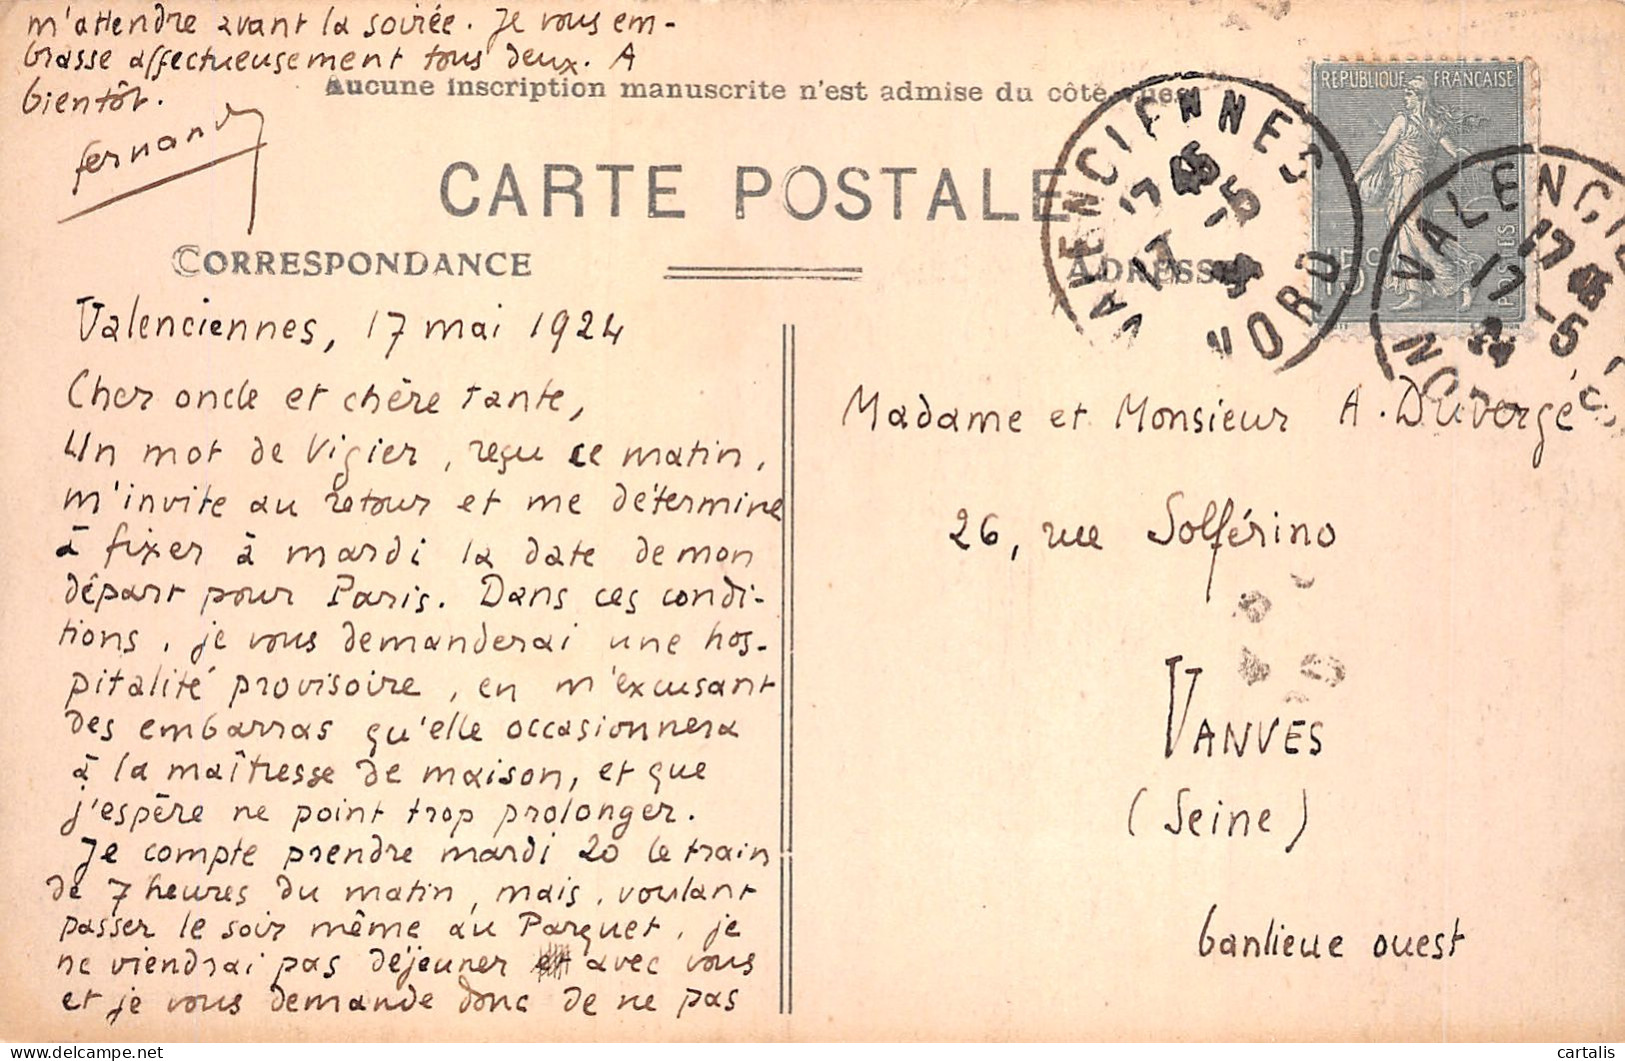 m'attendre avant la soirée. Je vous em-
brasse affectueusement tous deux. A
bientôt.
fernand
Aucune inscription manuscrite n'est admise du côté vues
CARTE POSTALE
CORRESPONDANCE
ADRESSE
REPUBLIQUE FRANÇAISE
15c
POSTES
VALENCIENNES
17 45
17 -5
24
NORD
VALENCIE
17 45
17 -5
24
NORD
Valenciennes, 17 mai 1924
Cher oncle et chère tante,
Un mot de Vigier, reçu ce matin,
m'invite au retour et me détermine
à fixer à mardi la date de mon
départ pour Paris. Dans ces condi-
tions, je vous demanderai une hos-
pitalité provisoire, en m'excusant
des embarras qu'elle occasionnera
à la maîtresse de maison, et que
j'espère ne point trop prolonger.
Je compte prendre mardi 20 le train
de 7 heures du matin, mais, voulant
passer le soir même au Parquet, je
ne viendrai pas déjeuner avec vous
et je vous demande donc de ne pas
Madame et Monsieur A. Duvergé
26, rue Solférino
VANVES
(Seine)
banlieue ouest
cartalis